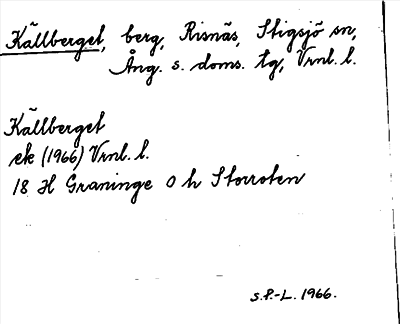 Källberget, berg, Risnäs, Stigsjö sn,
Ång. s. doms. tg, Vrnl. l.
Källberget
ek (1966) Vrnl. l.
18 H Graninge 0 h Storroten
S.P.-L. 1966.